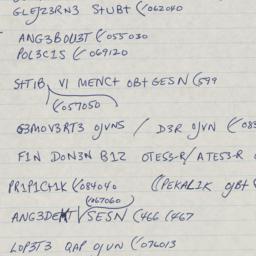 GLEJZ3RN3 StUBt (062040
ANG3BOU3T (055030
POL3C1S (069120
StT1B VI MENCt OBt GESN (599
(057050
G3MOV3RT3 OJVNS / D3R OJVN (083
F1N DON3N B1Z OTES3-R/ATES3-R
PR1P1Ct1K (084040 ((PEKAL1K OJBt
(067060
ANG3DEKT SESN (466 (467
LOP3T3 QAP OJVN (076013